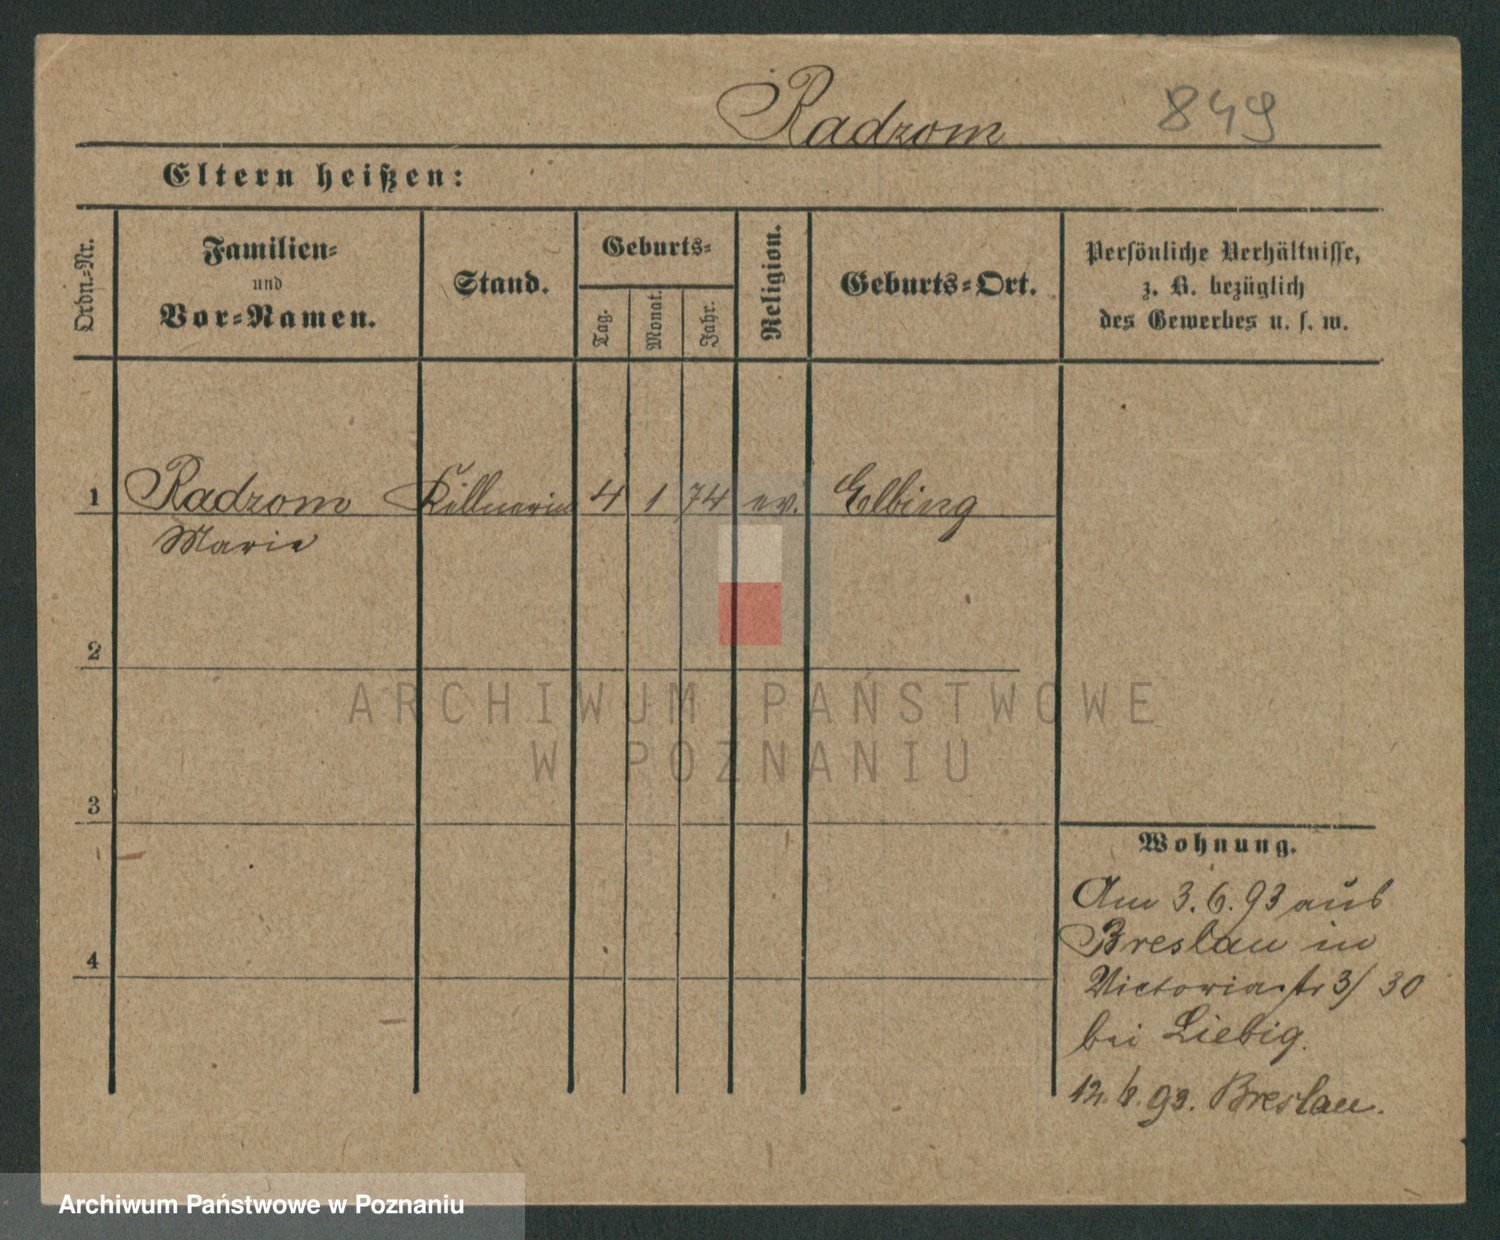 Radzom 849
Eltern heißen:
Ordn.-Nr.
Familien-
und
Vor-Namen.
Stand.
Geburts-
Tag.
Monat.
Jahr.
Religion.
Geburts-Ort.
Persönliche Verhältnisse,
z. B. bezüglich
des Gewerbes u. s. w.
1 Radzom Kellnerin 4 1 74 ev. Elbing
Marie
2
ARCHIWUM PAŃSTWOWE
W POZNANIU
3
Wohnung.
Am 3.6.93 aus
Breslau in
4
Victoriastr 3/30
bei Liebig.
12.6.93. Breslau.
Archiwum Państwowe w Poznaniu